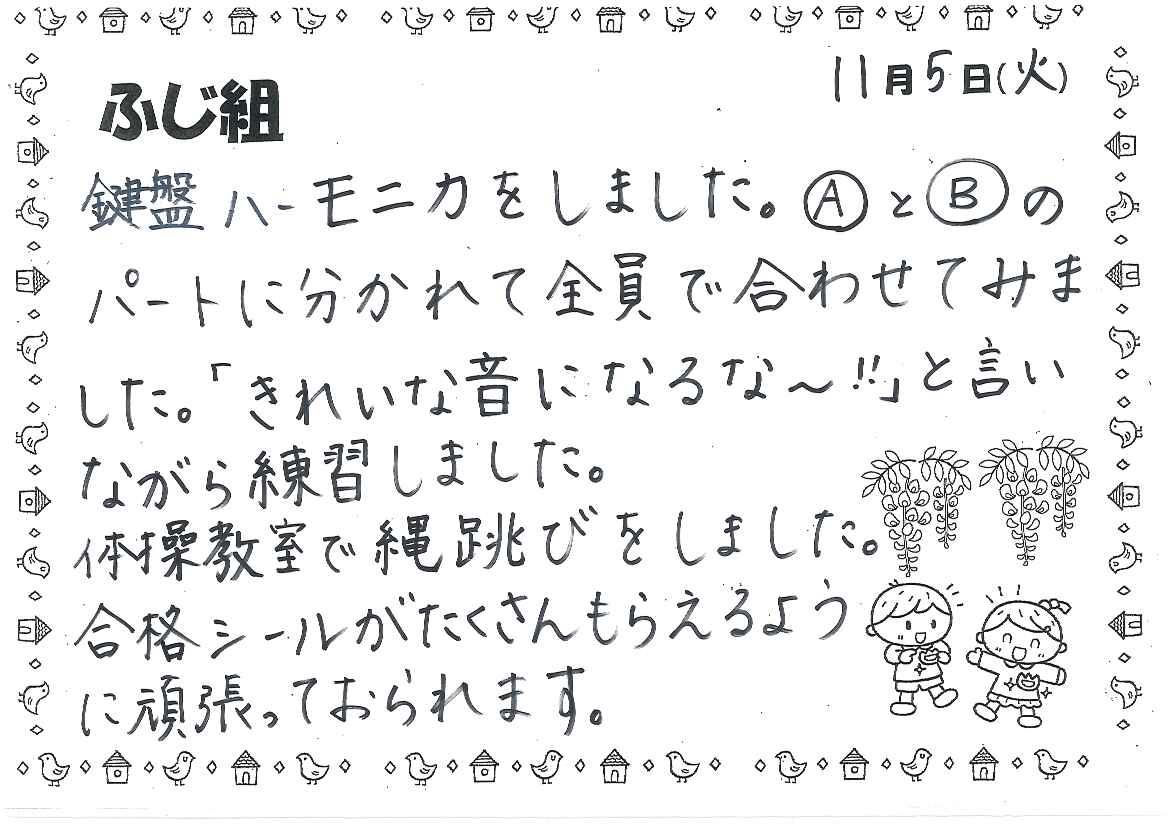 11月5日(火)
ふじ組
鍵盤ハーモニカをしました。ⒶとⒷの
パートに分かれて全員で合わせてみま
した。「きれいな音になるな〜!!」と言い
ながら練習しました。
体操教室で縄跳びをしました。
合格シールがたくさんもらえるよう
に頑張っておられます。